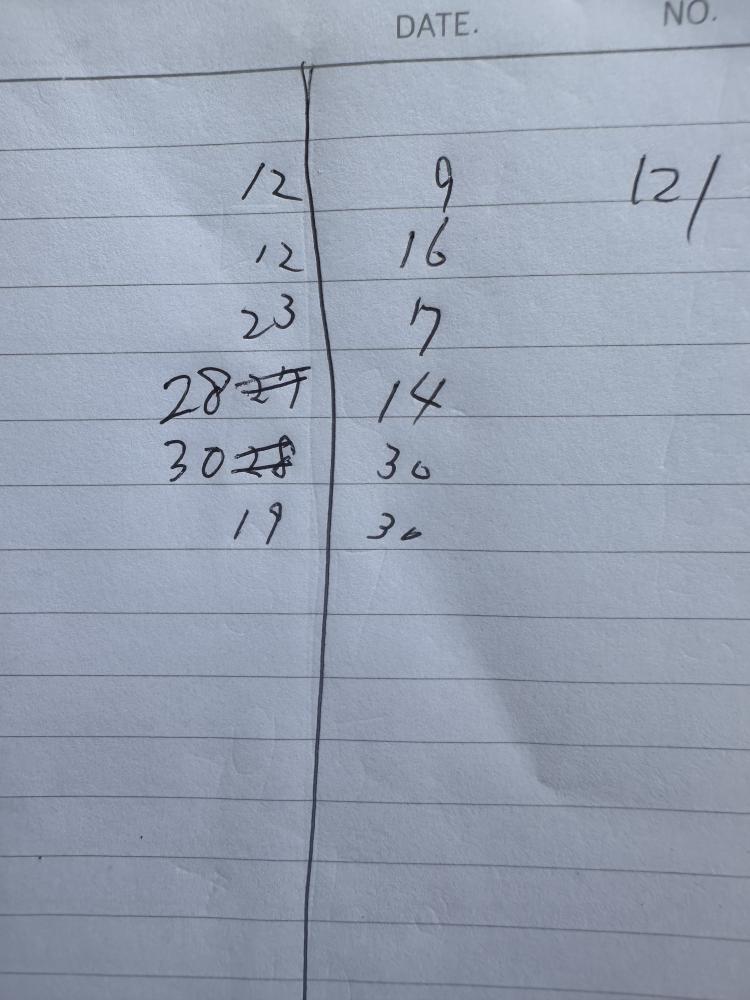 DATE. NO.
12 9 12/
12 16
23 17
28 27 14
30 28 30
19 30